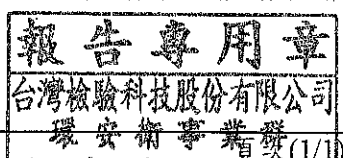 報告專用章
台灣檢驗科技股份有限公司
環安衛事業群
頁次(1/1)